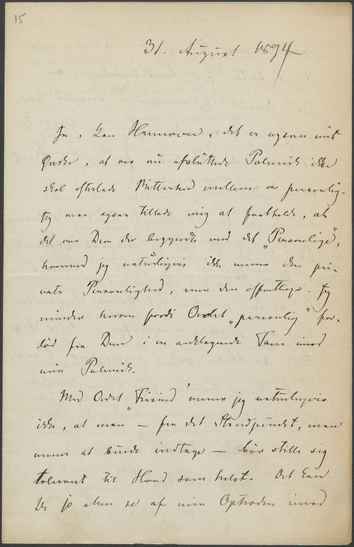 15
31. August 1894
Ja, kære Hannover, det er ogsaa mit
Ønske, at vor nu afsluttede Polemik ikke
skal efterlade Bitterhed mellem os personlig.
Jeg maa ogsaa tillade mig at fastholde, at
det var Dem der begyndte med det "Personlige",
hvormed jeg naturligvis ikke mener den pri-
vate Personlighed, men den offentlige. Jeg
minder hvor fordi Ordet "personlig" fa-
lød fra Dem i en anklagende Tone imod
min Polemik.
Med Ordet "Frisind" mener jeg naturligvis
ikke, at man — fra det Standpunkt, man
mener at burde indtage — bør stille sig
tolerant til Hvad somhelst. Det kan
De jo ogsaa se af min Optræden imod